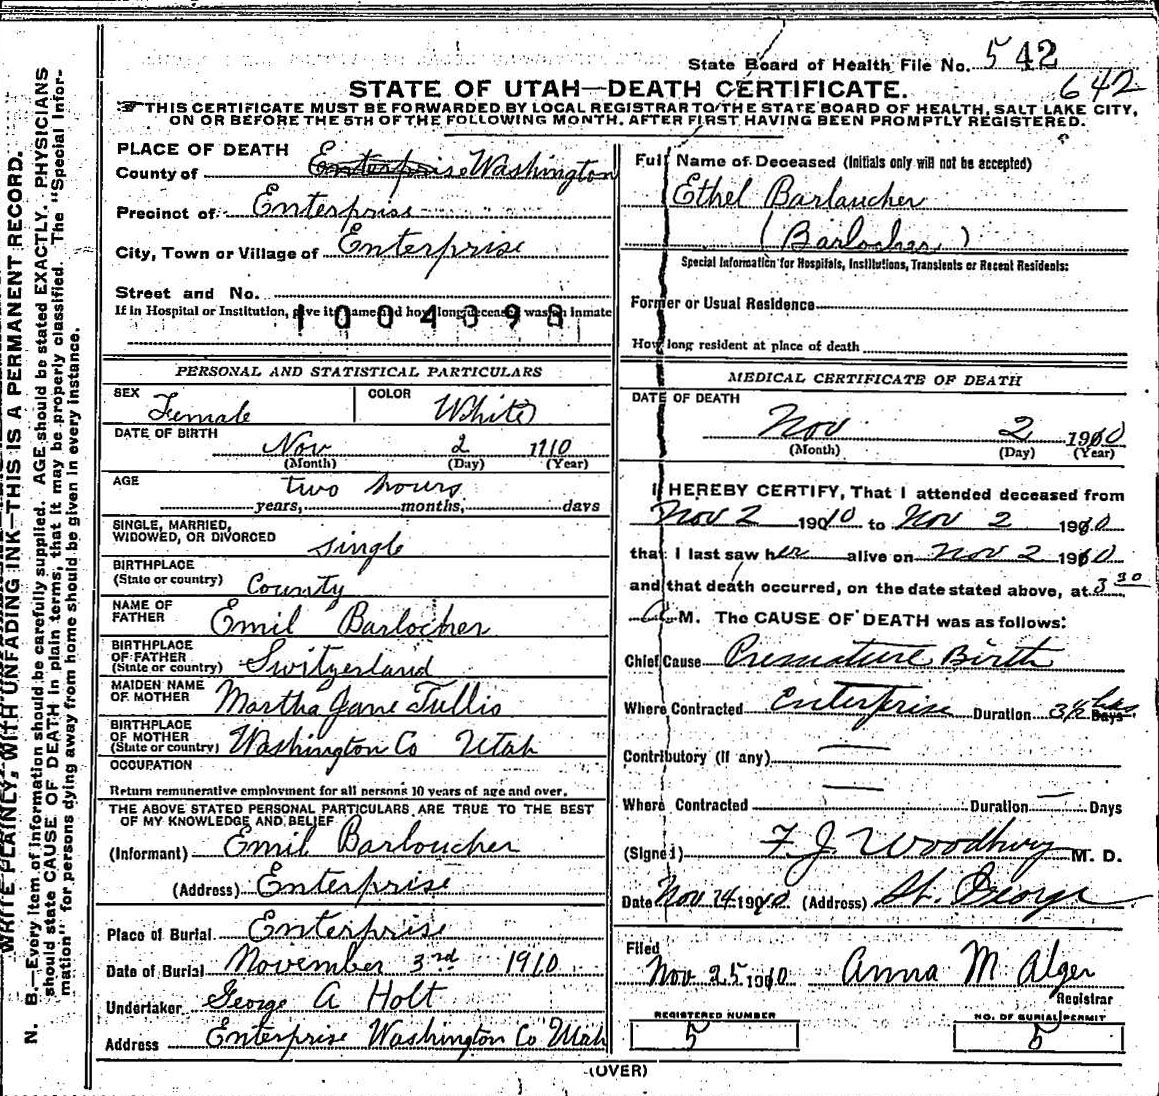 State Board of Health File No. 542
642
STATE OF UTAH—DEATH CERTIFICATE.
THIS CERTIFICATE MUST BE FORWARDED BY LOCAL REGISTRAR TO THE STATE BOARD OF HEALTH, SALT LAKE CITY,
ON OR BEFORE THE 5TH OF THE FOLLOWING MONTH, AFTER FIRST HAVING BEEN PROMPTLY REGISTERED.
PLACE OF DEATH
County of Enterprise Washington
Precinct of Enterprise
City, Town or Village of Enterprise
Street and No.
If in Hospital or Institution, give its name and how long deceased was an inmate
PERSONAL AND STATISTICAL PARTICULARS
SEX Female COLOR White
DATE OF BIRTH Nov 2 1910
(Month) (Day) (Year)
AGE two hours
years, months, days
SINGLE, MARRIED,
WIDOWED, OR DIVORCED single
BIRTHPLACE
(State or country) County
NAME OF
FATHER Emil Barlocher
BIRTHPLACE
OF FATHER
(State or country) Switzerland
MAIDEN NAME
OF MOTHER Martha Jane Tullis
BIRTHPLACE
OF MOTHER
(State or country) Washington Co Utah
OCCUPATION
Return remunerative employment for all persons 10 years of age and over.
THE ABOVE STATED PERSONAL PARTICULARS ARE TRUE TO THE BEST
OF MY KNOWLEDGE AND BELIEF
(Informant) Emil Barloucher
(Address) Enterprise
Place of Burial Enterprise
Date of Burial November 3rd 1910
Undertaker George A Holt
Address Enterprise Washington Co Utah
Full Name of Deceased (Initials only will not be accepted)
Ethel Barlaucher
(Barlocher)
Special Information for Hospitals, Institutions, Transients or Recent Residents:
Former or Usual Residence
How long resident at place of death
MEDICAL CERTIFICATE OF DEATH
DATE OF DEATH
Nov 2 1910
(Month) (Day) (Year)
I HEREBY CERTIFY, That I attended deceased from
Nov 2 1910 to Nov 2 1910
that I last saw her alive on Nov 2 1910
and that death occurred, on the date stated above, at 3 30
A.M. The CAUSE OF DEATH was as follows:
Chief Cause Premature Birth
Where Contracted Enterprise Duration 3½ hrs Days
Contributory (if any) —
Where Contracted — Duration — Days
(Signed) F. J. Woodbury M. D.
Date Nov 14 1910 (Address) St. George
Filed
Nov 25 1910 Anna M Alger
Registrar
REGISTERED NUMBER
5
NO. OF BURIAL PERMIT
5
(OVER)
WRITE PLAINLY, WITH UNFADING INK—THIS IS A PERMANENT RECORD.
N. B.—Every item of information should be carefully supplied. AGE should be stated EXACTLY. PHYSICIANS
should state CAUSE OF DEATH in plain terms, that it may be properly classified. The "Special Infor-
mation" for persons dying away from home should be given in every instance.